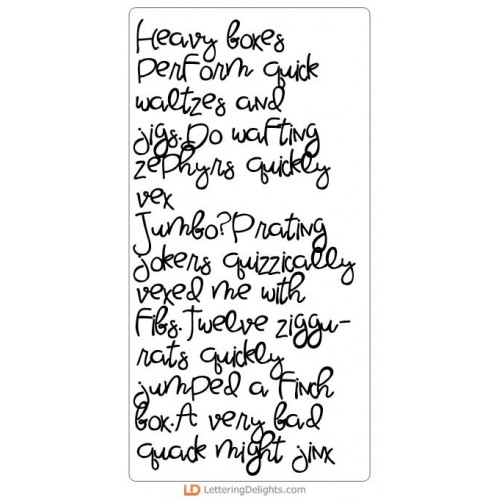 Heavy boxes
perform quick
waltzes and
jigs.Do wafting
zephyrs quickly
vex
Jumbo?Prating
jokers quizzically
vexed me with
fibs.Twelve ziggu-
rats quickly
jumped a finch
box.A very bad
quack might jinx
LD LetteringDelights.com